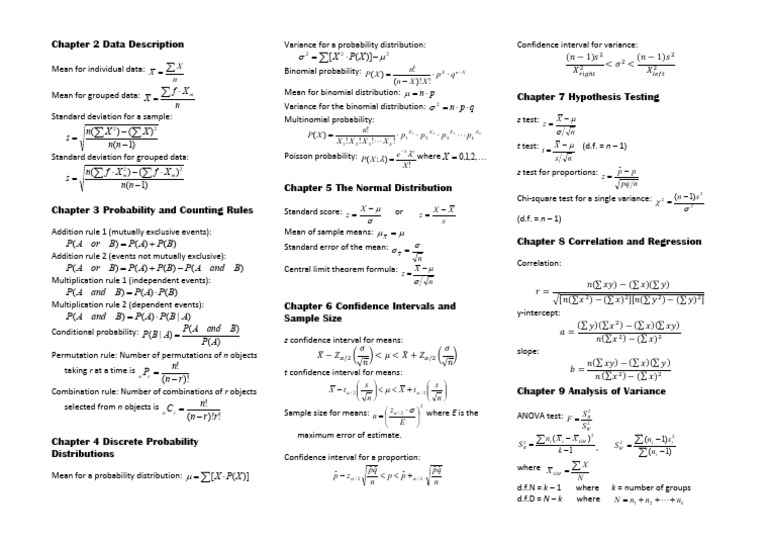 Chapter 2 Data Description
Mean for individual data: X̄ = ∑X / n
Mean for grouped data: X̄ = ∑f · Xₘ / n
Standard deviation for a sample:
s = √[ (n(∑X²) − (∑X)²) / (n(n−1)) ]
Standard deviation for grouped data:
s = √[ (n(∑f · Xₘ²) − (∑f · Xₘ)²) / (n(n−1)) ]
Chapter 3 Probability and Counting Rules
Addition rule 1 (mutually exclusive events):
P(A or B) = P(A) + P(B)
Addition rule 2 (events not mutually exclusive):
P(A or B) = P(A) + P(B) − P(A and B)
Multiplication rule 1 (independent events):
P(A and B) = P(A) · P(B)
Multiplication rule 2 (dependent events):
P(A and B) = P(A) · P(B | A)
Conditional probability: P(B | A) = P(A and B) / P(A)
Permutation rule: Number of permutations of n objects
taking r at a time is ₙPᵣ = n! / (n−r)!
Combination rule: Number of combinations of r objects
selected from n objects is ₙCᵣ = n! / ((n−r)!r!)
Chapter 4 Discrete Probability
Distributions
Mean for a probability distribution: μ = ∑[X · P(X)]
Variance for a probability distribution:
σ² = ∑[X² · P(X)] − μ²
Binomial probability: P(X) = n! / ((n−X)!X!) · pˣ · qⁿ⁻ˣ
Mean for binomial distribution: μ = n · p
Variance for the binomial distribution: σ² = n · p · q
Multinomial probability:
P(X) = n! / (X₁!X₂!X₃!⋯Xₖ!) · p₁^X₁ · p₂^X₂ · p₃^X₃ ⋯ pₖ^Xₖ
Poisson probability: P(X; λ) = e^−λ λ^X / X! where X = 0,1,2,…
Chapter 5 The Normal Distribution
Standard score: z = (X − μ) / σ or z = (X − X̄) / s
Mean of sample means: μ_X̄ = μ
Standard error of the mean: σ_X̄ = σ / √n
Central limit theorem formula: z = (X̄ − μ) / (σ/√n)
Chapter 6 Confidence Intervals and
Sample Size
z confidence interval for means:
X̄ − Z_α/2 (σ/√n) < μ < X̄ + Z_α/2 (σ/√n)
t confidence interval for means:
X̄ − t_α/2 (s/√n) < μ < X̄ + t_α/2 (s/√n)
Sample size for means: n = (z_α/2 · σ / E)² where E is the
maximum error of estimate.
Confidence interval for a proportion:
p̂ − z_α/2 √(p̂q̂/n) < p < p̂ + _α/2 √(p̂q̂/n)
Confidence interval for variance:
(n − 1)s² / X²_right < σ² < (n − 1)s² / X²_left
Chapter 7 Hypothesis Testing
z test: z = (X̄ − μ) / (σ/√n)
t test: t = (X̄ − μ) / (s/√n) (d.f. = n − 1)
z test for proportions: z = (p̂ − p) / √(pq/n)
Chi-square test for a single variance: χ² = (n−1)s² / σ²
(d.f. = n − 1)
Chapter 8 Correlation and Regression
Correlation:
r = (n(∑xy) − (∑x)(∑y)) / √([n(∑x²) − (∑x)²][n(∑y²) − (∑y)²])
y-intercept:
a = ((∑y)(∑x²) − (∑x)(∑xy)) / (n(∑x²) − (∑x)²)
slope:
b = (n(∑xy) − (∑x)(∑y)) / (n(∑x²) − (∑x)²)
Chapter 9 Analysis of Variance
ANOVA test: F = S_B² / S_W²
S_B² = ∑nᵢ(X̄ᵢ − X̄_GM)² / (k−1) , S_W² = ∑(nᵢ −1)sᵢ² / ∑(nᵢ −1)
where X̄_GM = ∑X / N
d.f.N = k − 1 where k = number of groups
d.f.D = N − k where N = n₁ + n₂ + ⋯ + nₖ